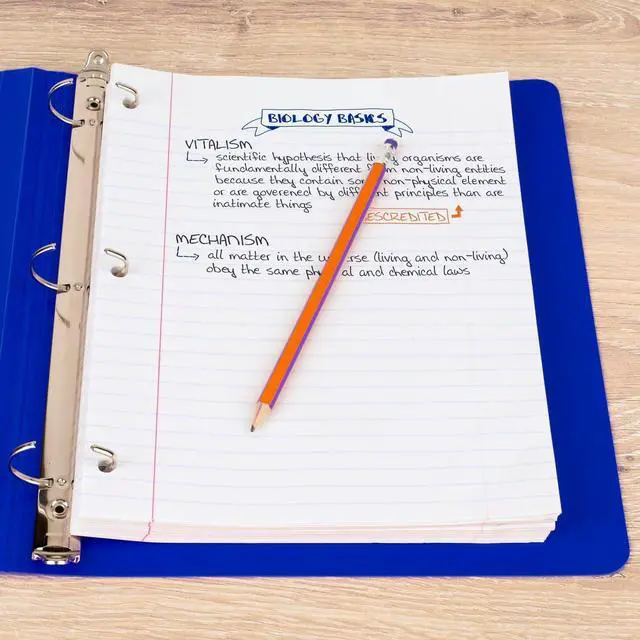 BIOLOGY BASICS
VITALISM
scientific hypothesis that living organisms are
fundamentally different from non-living entities
because they contain some non-physical element
or are goverened by different principles than are
inatimate things
ESCREDITED
MECHANISM
all matter in the universe (living and non-living)
obey the same physical and chemical laws